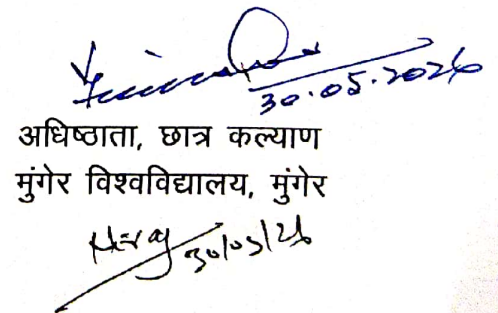 30.05.2026
अधिष्ठाता, छात्र कल्याण
मुंगेर विश्वविद्यालय, मुंगेर
30/05/26